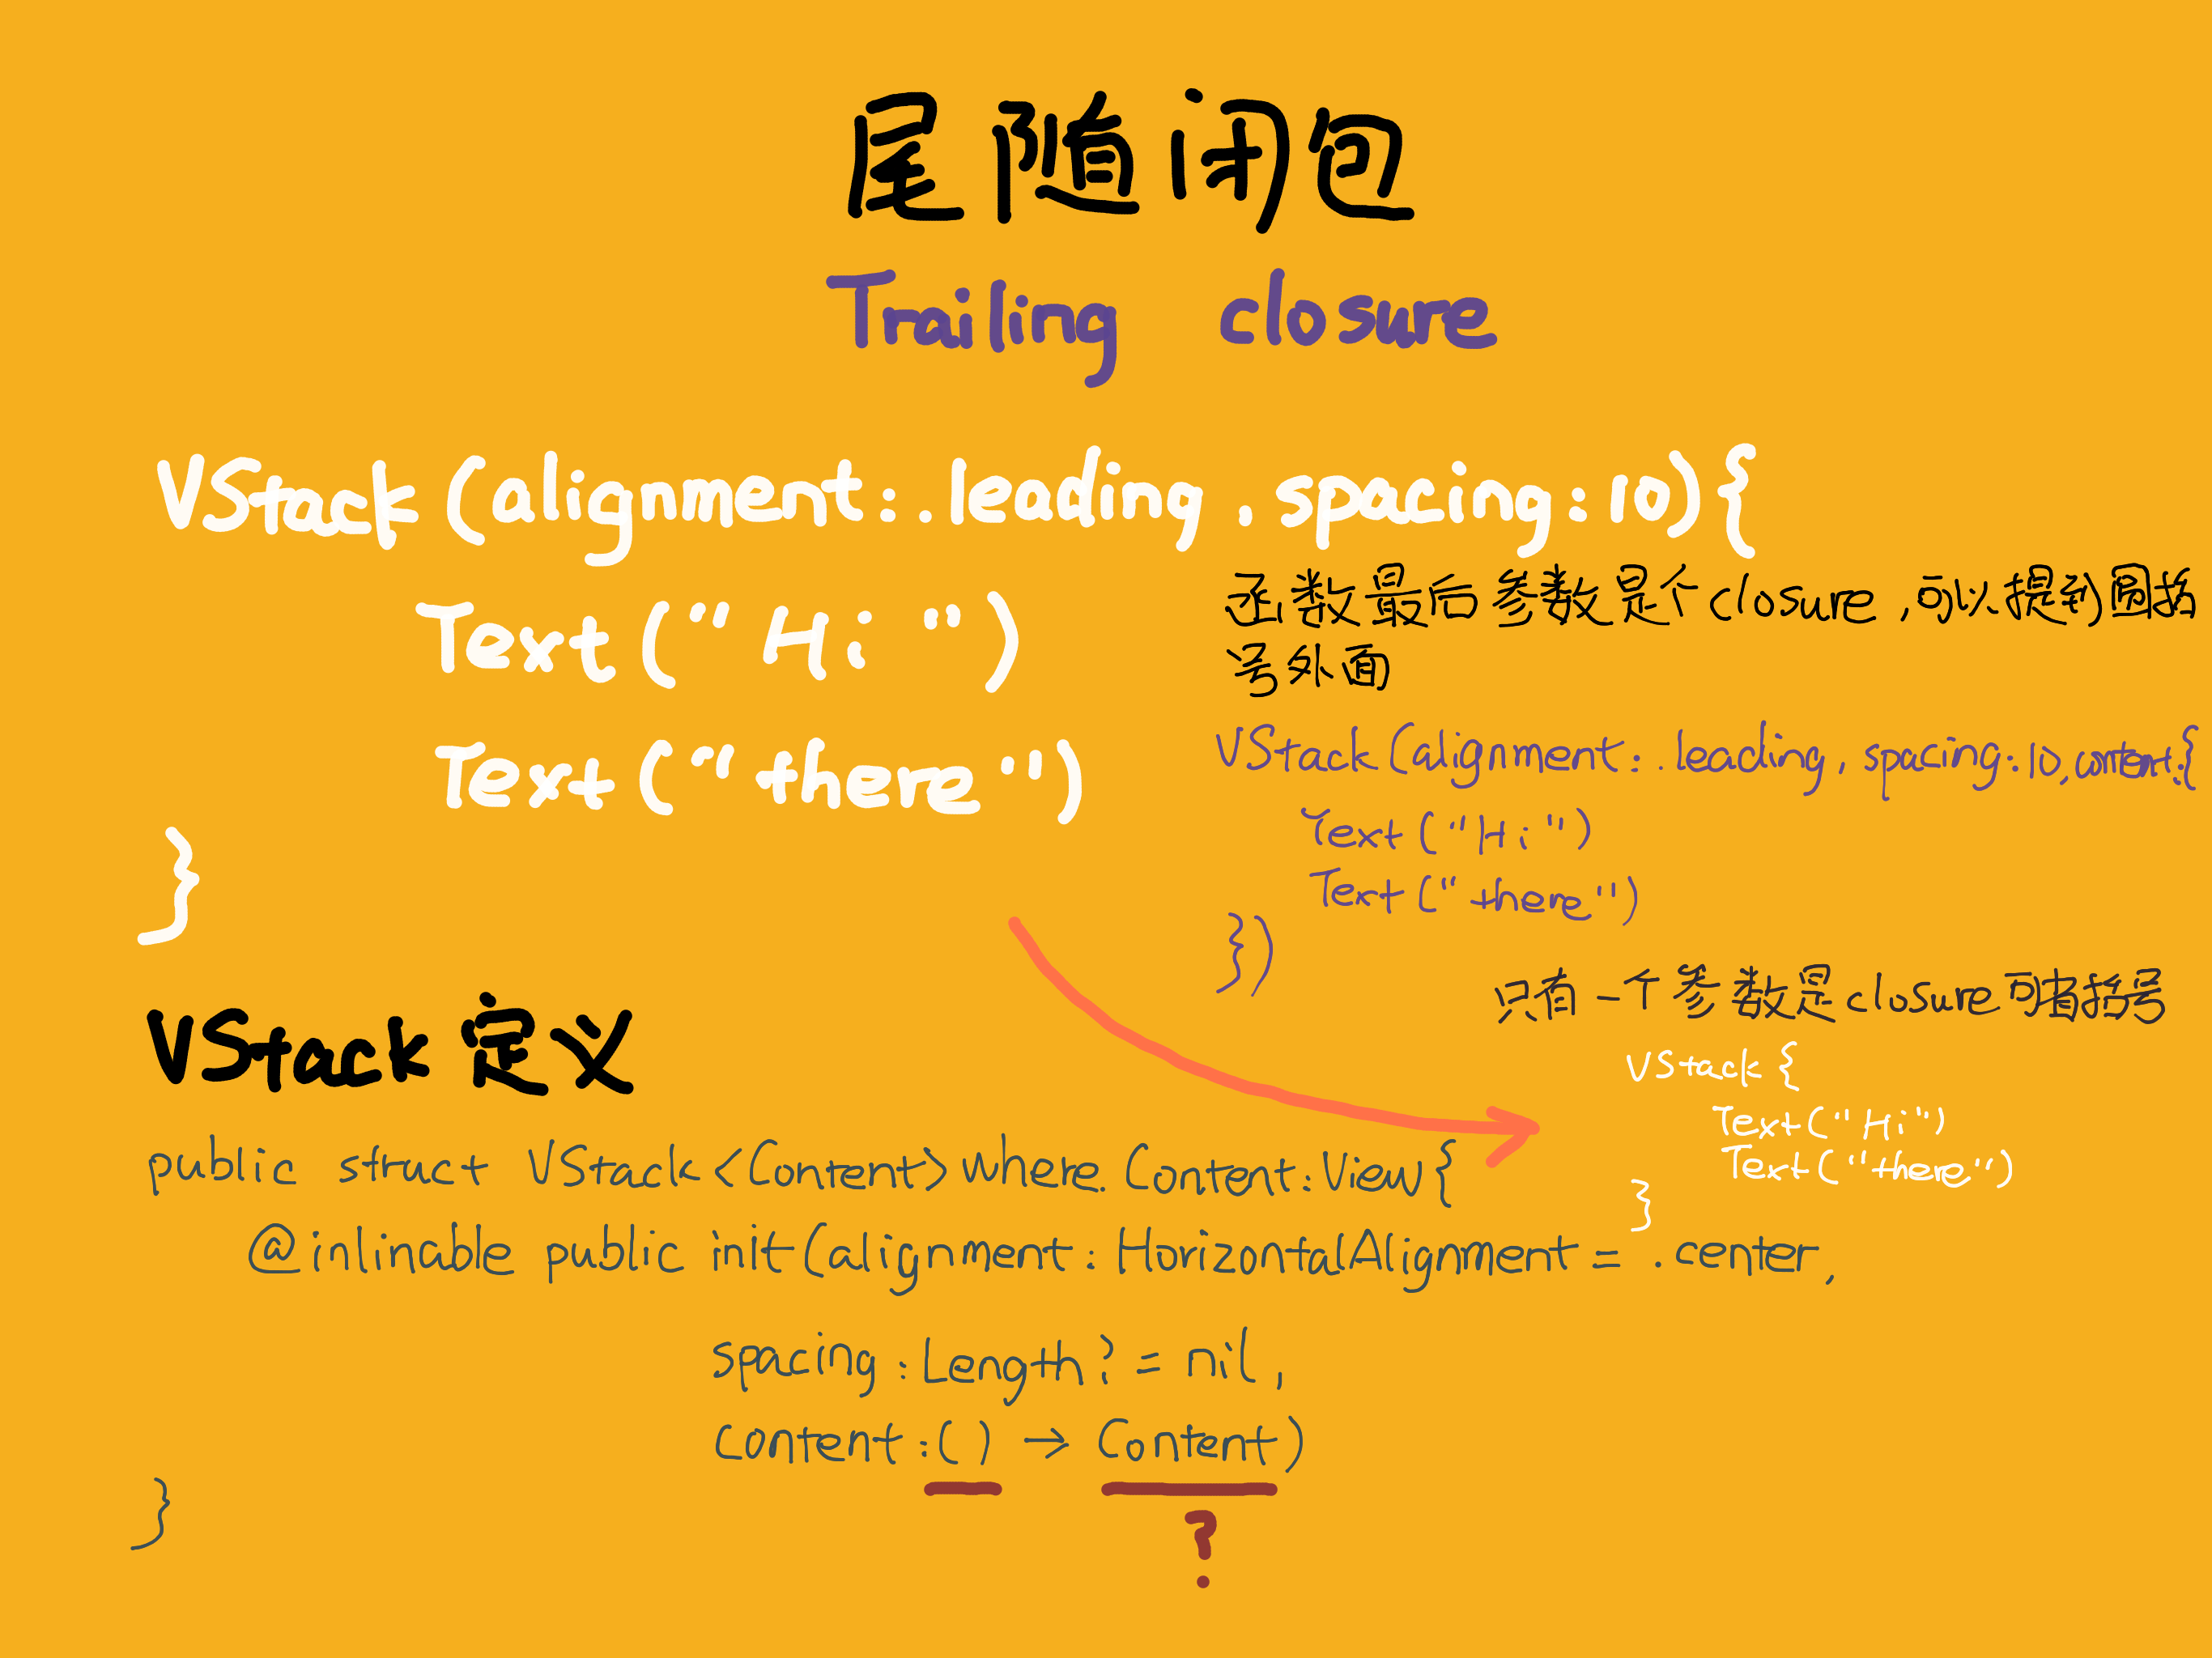 尾随闭包
Trailing closure
VStack (alignment: .leading, spacing:10){
Text ("Hi")
Text ("there")
}
函数最后参数是个closure,可以提到圆括
号外面
VStack (alignment: .leading, spacing:10, content:{
Text ("Hi")
Text ("there")
})
只有一个参数是closure可省括号
VStack {
Text ("Hi")
Text ("there")
}
VStack 定义
public struct VStack<Content> where Content: View {
@inlinable public init(alignment: HorizontalAlignment = .center,
spacing: Length? = nil,
content: () → Content)
?
}